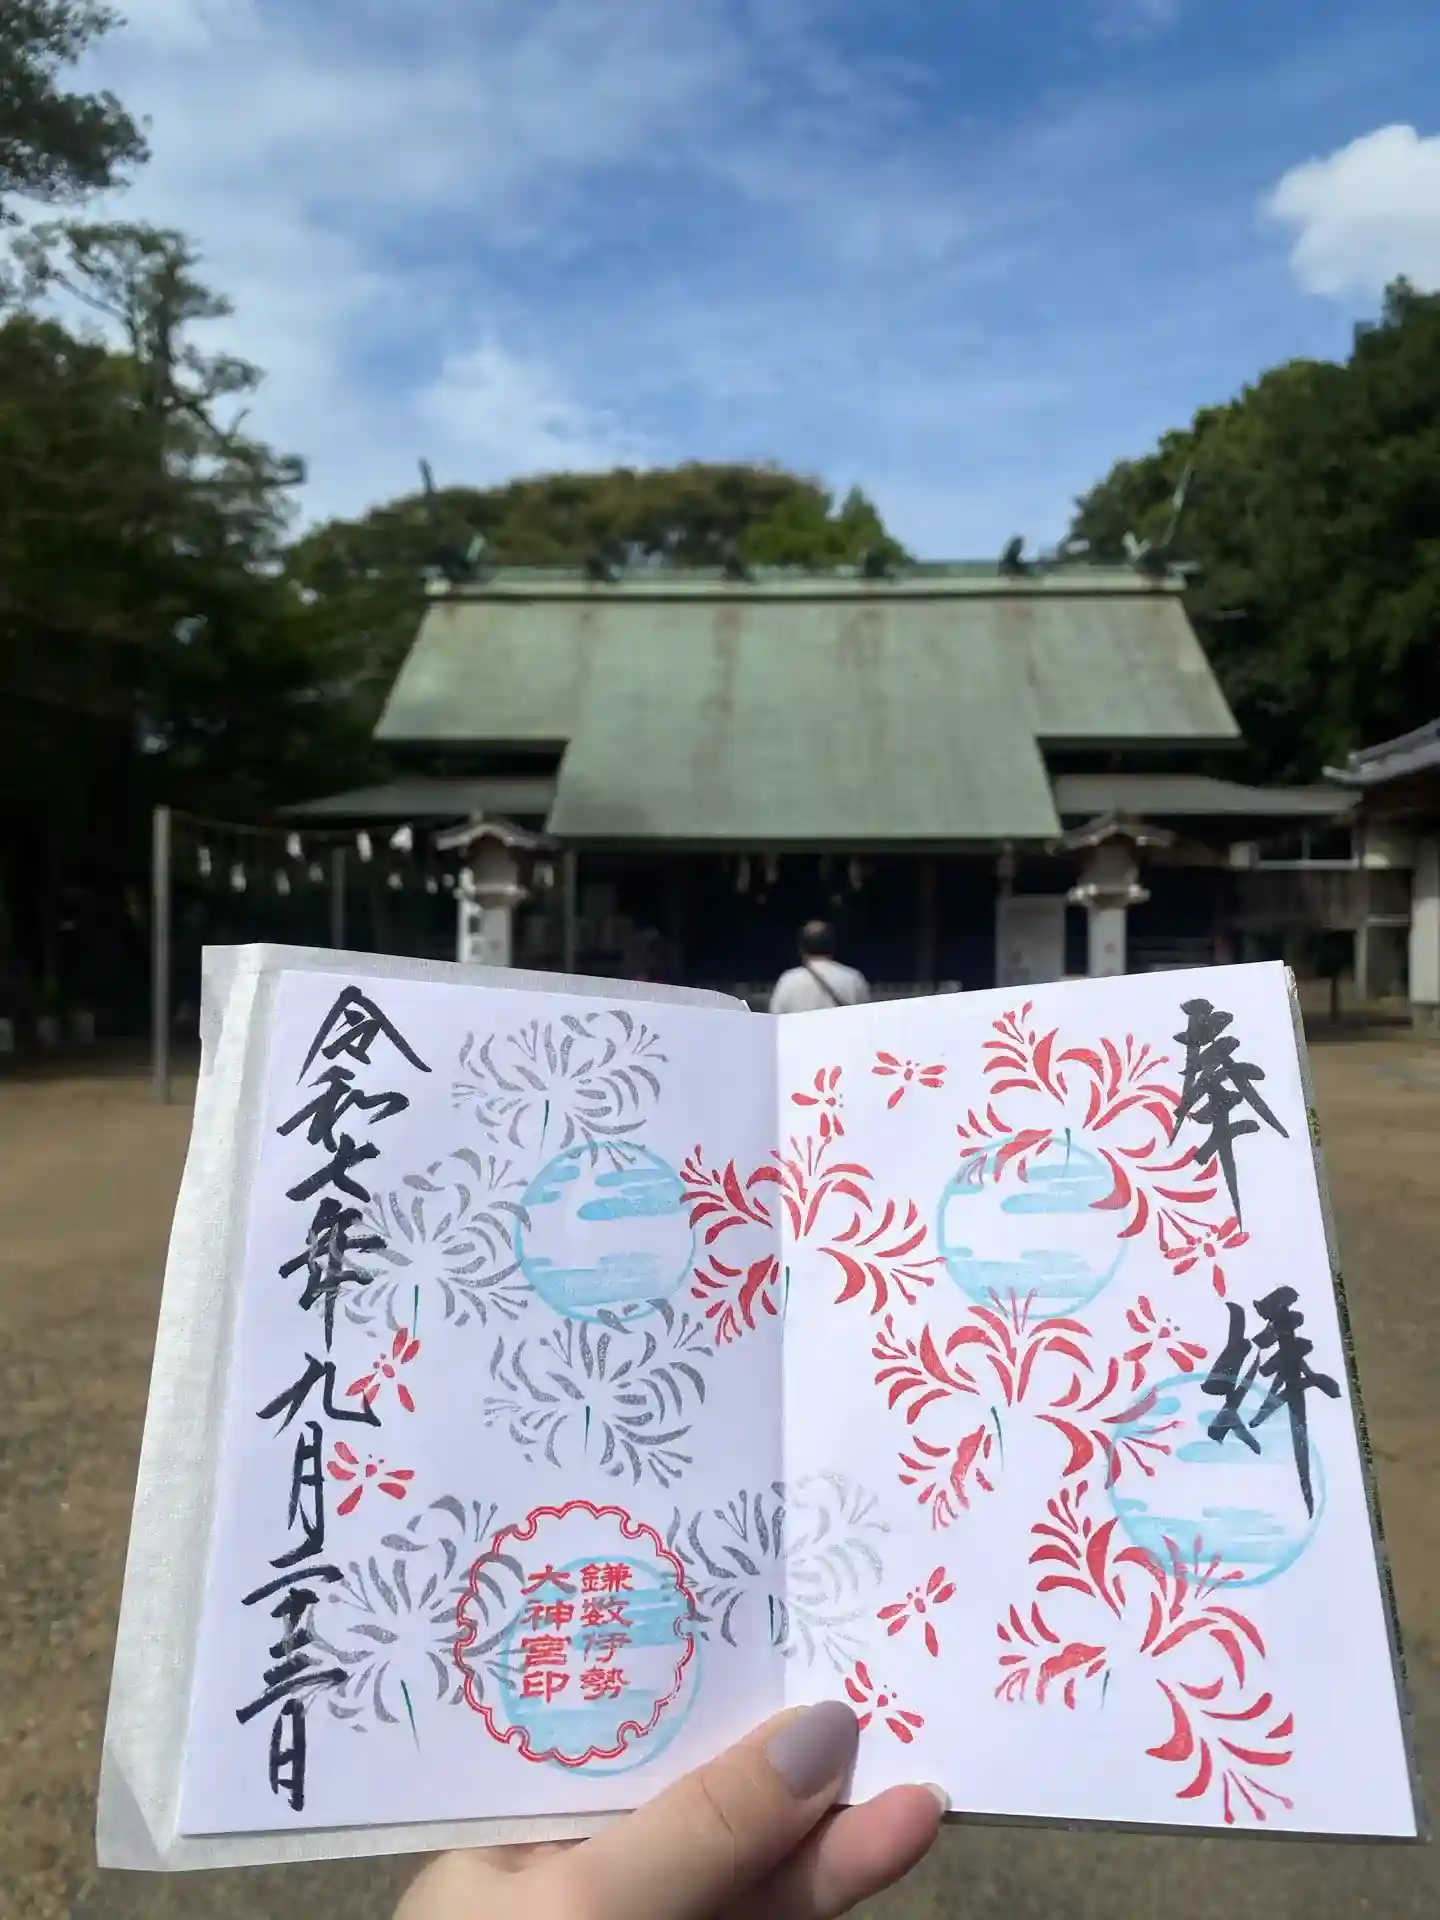 奉拝
鎌数伊勢
大神宮印
令和七年九月二十三日